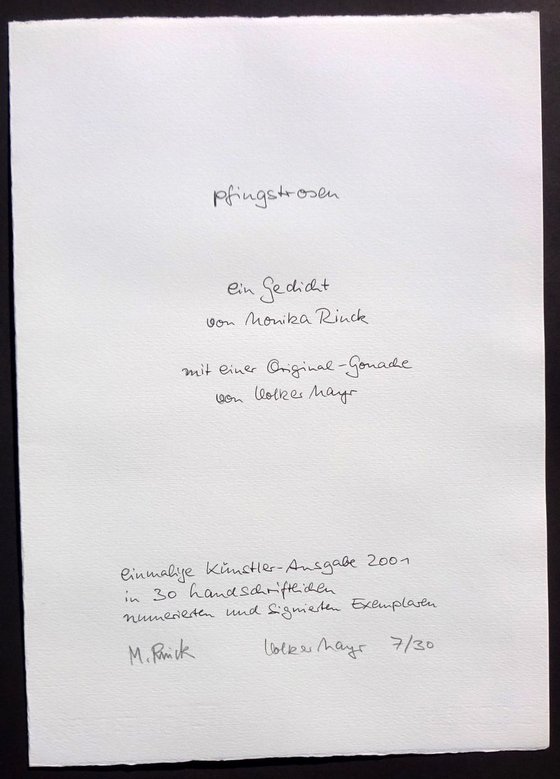 pfingstrosen
ein Gedicht
von Monika Rinck
mit einer Original-Gouache
von Volker Mayr
einmalige Künstler-Ausgabe 2001
in 30 handschriftlichen
numerierten und signierten Exemplaren
M. Rinck Volker Mayr 7/30